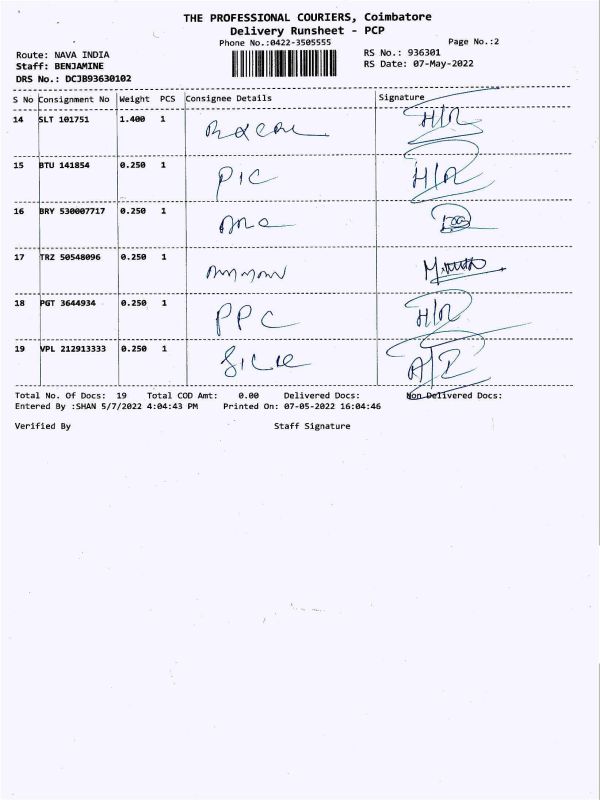 THE PROFESSIONAL COURIERS, Coimbatore
Delivery Runsheet - PCP
Phone No.:0422-3505555 Page No.:2
Route: NAVA INDIA RS No.: 936301
Staff: BENJAMINE RS Date: 07-May-2022
DRS No.: DCJB93630102
S No Consignment No Weight PCS Consignee Details Signature
14 SLT 101751 1.400 1 H/R
15 BTU 141854 0.250 1 PIC H/R
16 BRY 530007717 0.250 1
17 TRZ 50548096 0.250 1
18 PGT 3644934 0.250 1 PPC H/R
19 VPL 212913333 0.250 1
Total No. Of Docs: 19 Total COD Amt: 0.00 Delivered Docs: Non Delivered Docs:
Entered By :SHAN 5/7/2022 4:04:43 PM Printed On: 07-05-2022 16:04:46
Verified By Staff Signature